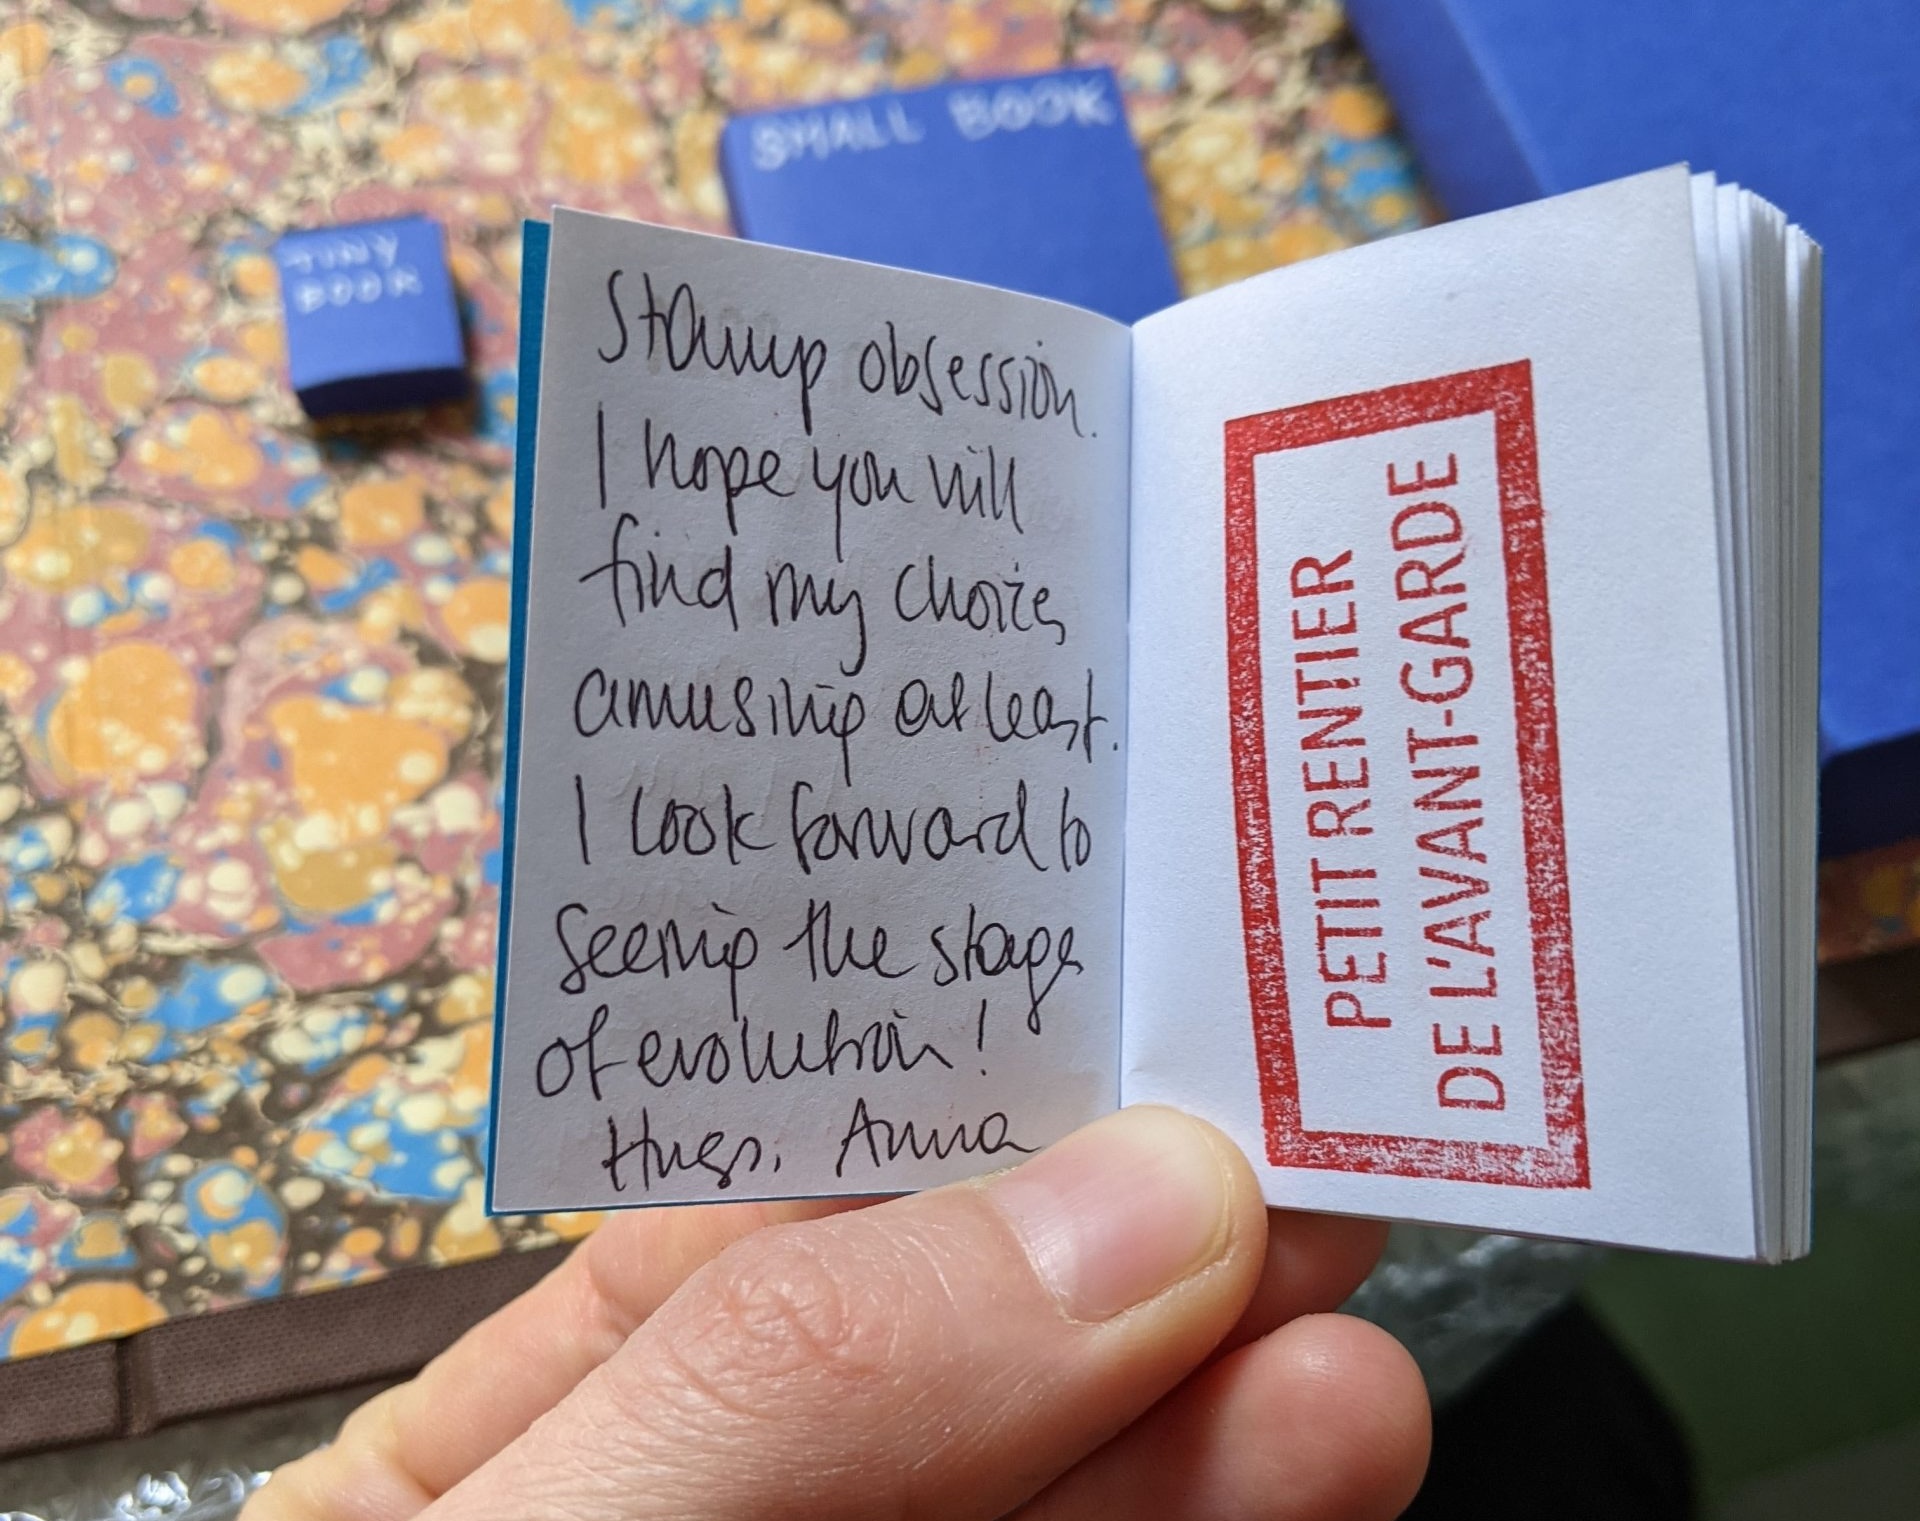 SMALL BOOK
TINY
BOOK
Stamp obsession.
I hope you will
find my choice
amusing at least.
I look forward to
seeing the stage
of evolution!
Hugs, Anna
PETIT RENTIER
DE L'AVANT-GARDE